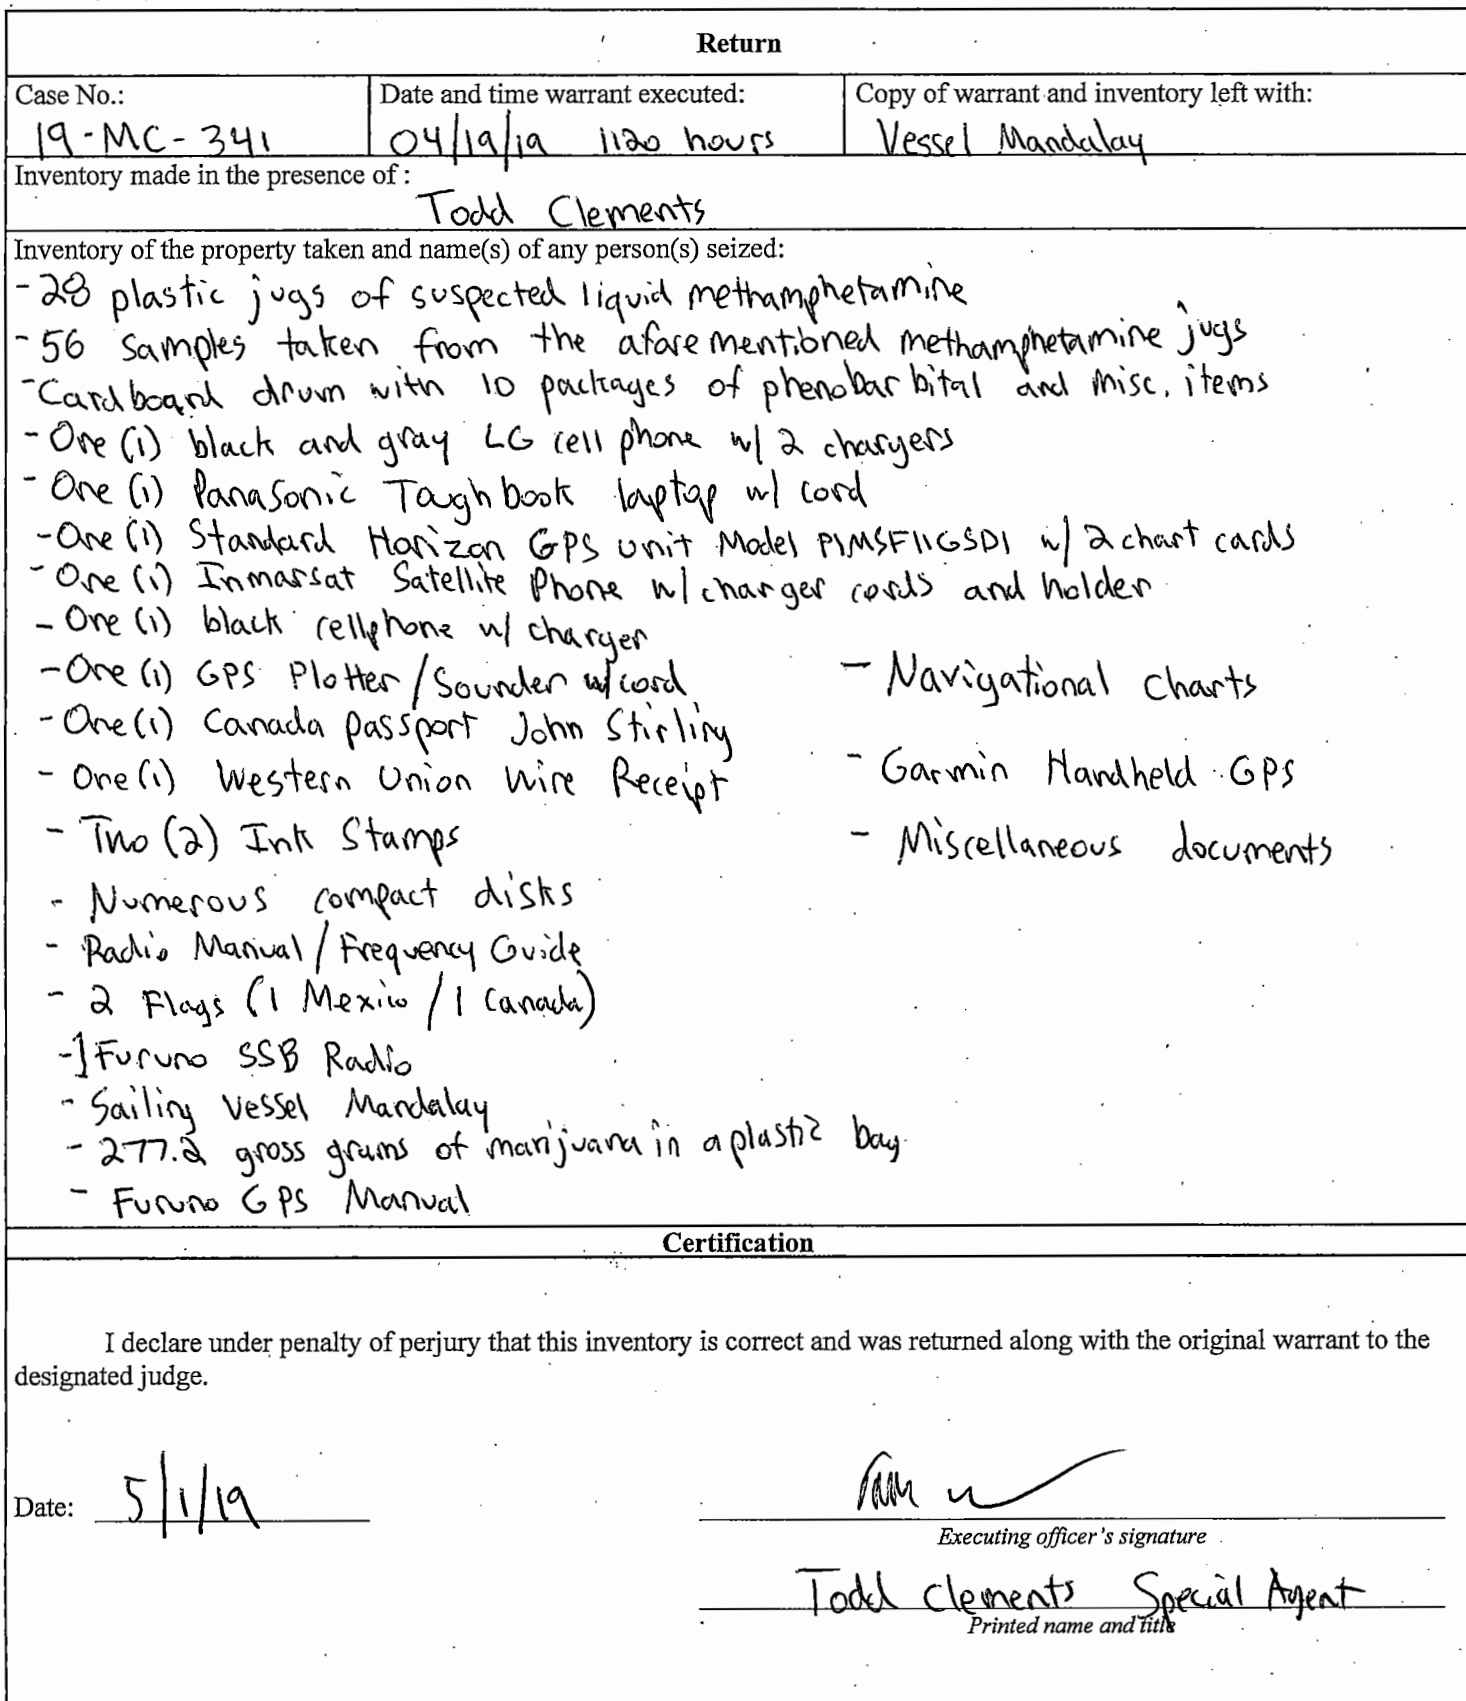 Return
Case No.:
19-MC-341
Date and time warrant executed:
04/19/19 1120 hours
Copy of warrant and inventory left with:
Vessel Mandalay
Inventory made in the presence of :
Todd Clements
Inventory of the property taken and name(s) of any person(s) seized:
- 28 plastic jugs of suspected liquid methamphetamine
- 56 samples taken from the aforementioned methamphetamine jugs
- Cardboard drum with 10 packages of phenobarbital and misc. items
- One (1) black and gray LG cell phone w/ 2 chargers
- One (1) Panasonic Toughbook laptop w/ cord
- One (1) Standard Horizon GPS unit Model P1MSF11GSD1 w/ 2 chart cards
- One (1) Inmarsat Satellite Phone w/ charger cords and holder
- One (1) black cellphone w/ charger
- One (1) GPS Plotter/Sounder w/ cord
- One (1) Canada passport John Stirling
- One (1) Western Union Wire Receipt
- Two (2) Ink Stamps
- Numerous compact disks
- Radio Manual / Frequency Guide
- 2 Flags (1 Mexico / 1 Canada)
- 1 Furuno SSB Radio
- Sailing Vessel Mandalay
- 277.2 gross grams of marijuana in a plastic bag
- Furuno GPS Manual
- Navigational charts
- Garmin Handheld GPS
- Miscellaneous documents
Certification
I declare under penalty of perjury that this inventory is correct and was returned along with the original warrant to the
designated judge.
Date: 5/1/19
Executing officer's signature
Todd Clements Special Agent
Printed name and title